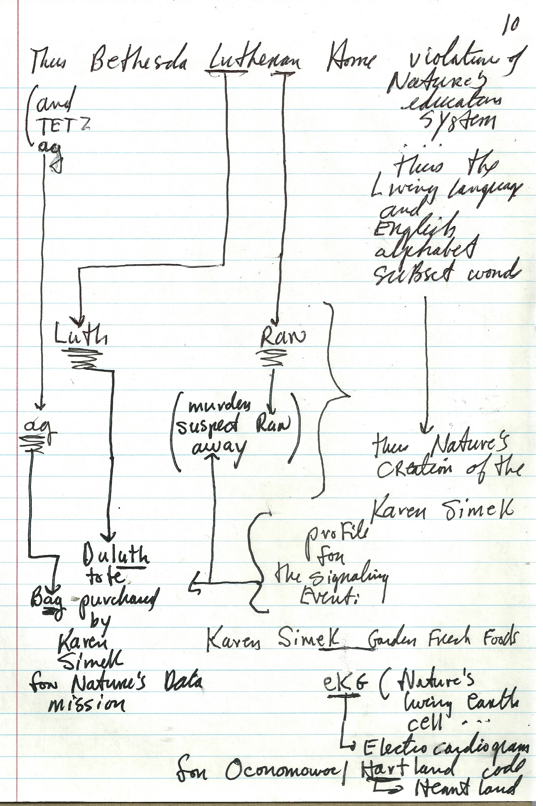 10
Thus Bethesda Lutheran Home
violation of
Nature's
education
system
...
thus the
Living language
and
English
alphabet
SUBset word
(and
TETZ
ag
Luth
Ran
(murder
suspect Ran
away)
ag
thus Nature's
creation of the
Karen Simek
proFile
for
the signaling
Event:
Duluth
tote
Bag purchased
by
Karen
Simek
for Nature's Data
mission
Karen Simek Garden Fresh Foods
eKG (Nature's
living earth
cell ...
Electrocardiogram
for Oconomowoc/Hartland code
Heartland